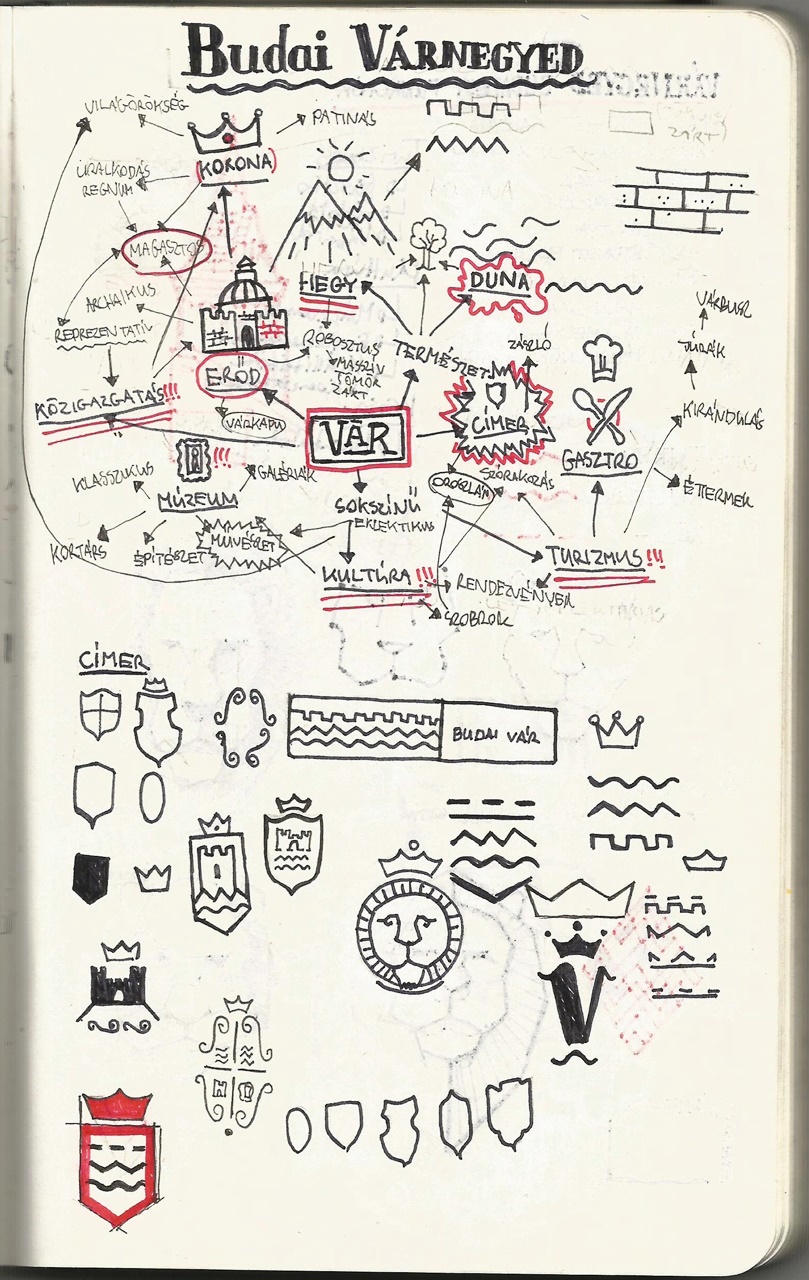 Budai VÁRNEGYED
VILÁGÖRÖKSÉG
PATINÁS
(KORONA)
ZÁRT
URALKODÁS
REGNUM
MAGASZTOS
HEGY
DUNA
ARCHAIKUS
REPREZENTATÍV
ROBOSZTUS
MASSZÍV
TÖMÖR
ZÁRT
TERMÉSZET
ZÁSZLÓ
VÁRBUSZ
TÚRÁK
ERŐD
KÖZIGAZGATÁS!!!
VÁRKAPU
VÁR
CÍMER
KIRÁNDULÁS
GASZTRO
!!!
KLASSZIKUS
GALÉRIÁK
MÚZEUM
SZÓRAKOZÁS
OROSZLÁN
ÉTTERMEK
SOKSZÍNŰ
EKLEKTIKUS
KORTÁRS
ÉPÍTÉSZET
MŰVÉSZET
TURIZMUS!!!
KULTÚRA!!!
RENDEZVÉNYEK
SZOBROK
CÍMER
BUDAI VÁR
V